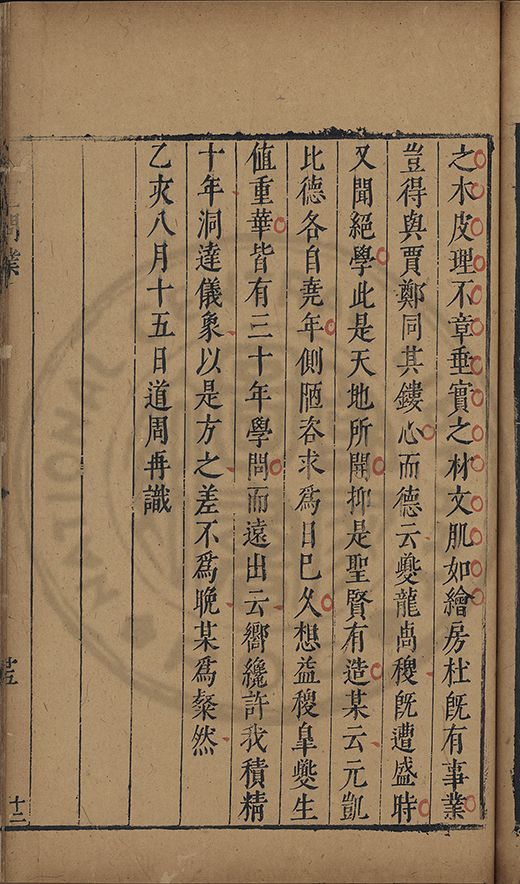 之木皮理不章垂實之材文肌如繪房杜旣有事業
豈得與賈鄭同其鏤心而德云夔龍卨稷旣遭盛時
又聞絕學此是天地所開抑是聖賢有造某云元凱
比德各自堯年側陋咨求爲日已久想益稷皐夔生
值重華皆有三十年學問而遠出云嚮纔許我積精
十年洞達儀象以是方之差不爲晚某爲粲然
乙亥八月十五日道周再識
業
十二